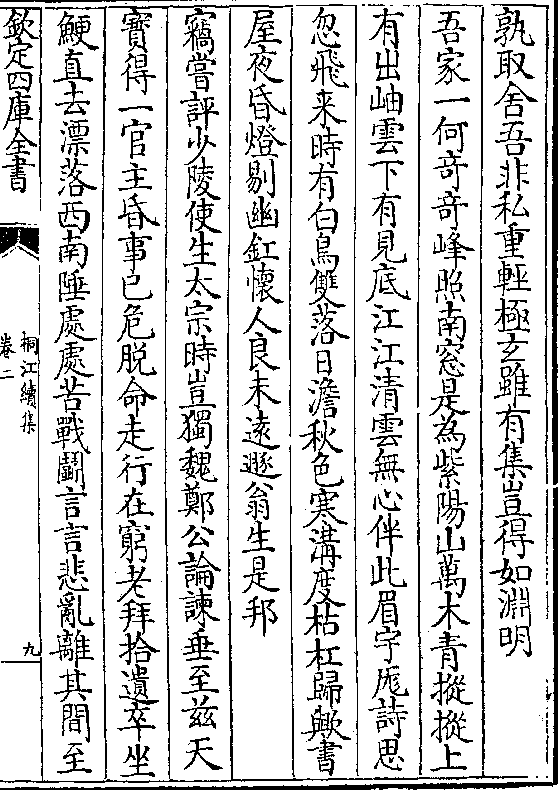 孰取舍吾非私重輕極玄雖有集豈得如淵明
吾家一何奇奇峰照南窓是為紫陽山萬木青摐摐上
有出岫雲下有見底江江清雲無心伴此眉宇厖詩思
忽飛来時有白鳥雙落日澹秋色寒溝度枯杠歸歟書
屋夜昏燈剔幽釭懐人良未逺遯翁生是邦
竊嘗評少陵使生太宗時豈獨魏鄭公論諫垂至兹天
寳得一官主昏事已危脱命走行在窮老拜拾遺卒坐
鯁直去漂落西南陲處處苦戰鬬言言悲亂離其間至
欽定四庫全書
桐江續集
卷二
九